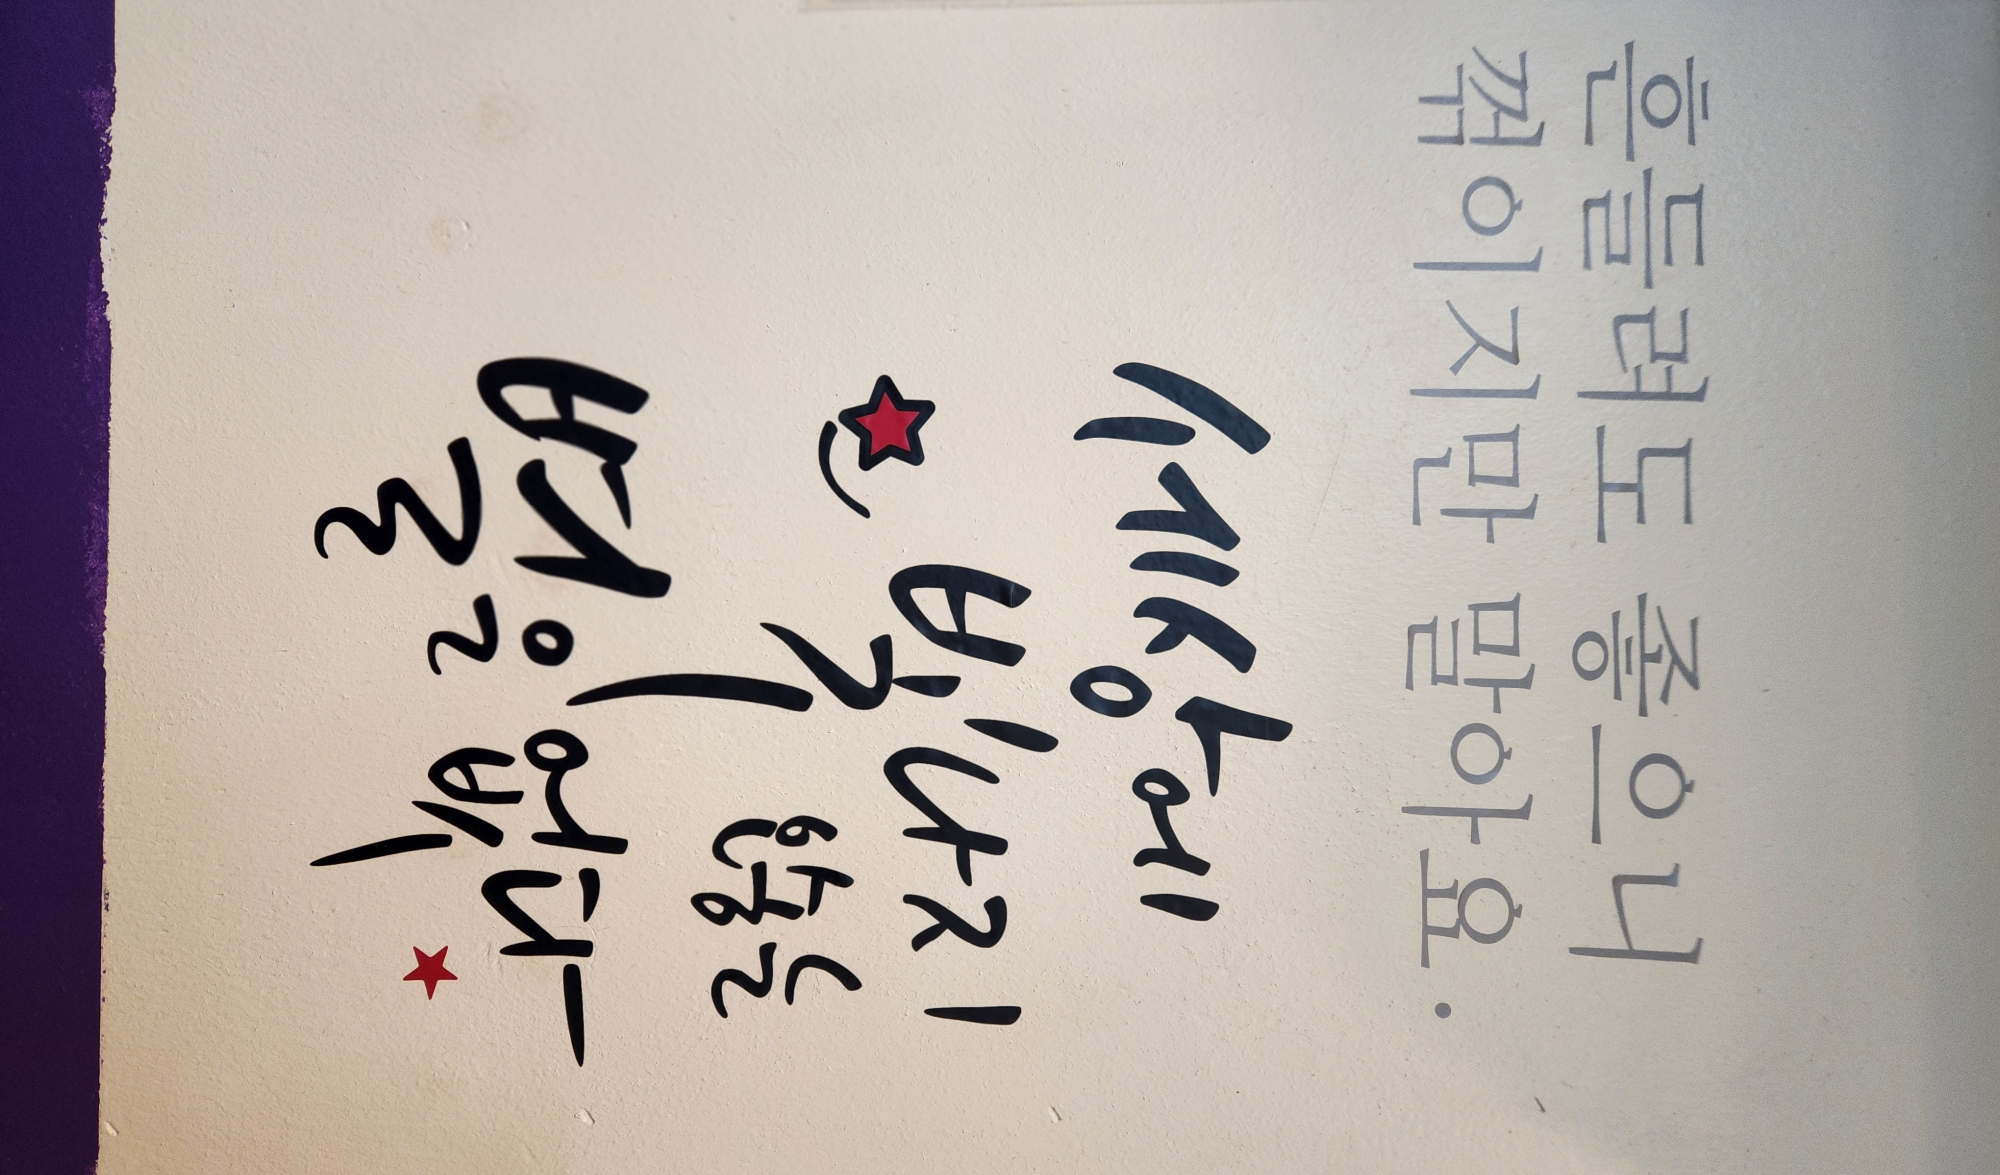 흔들려도 좋으니
꺾이지만 말아요.
세상에
빛나지
없다